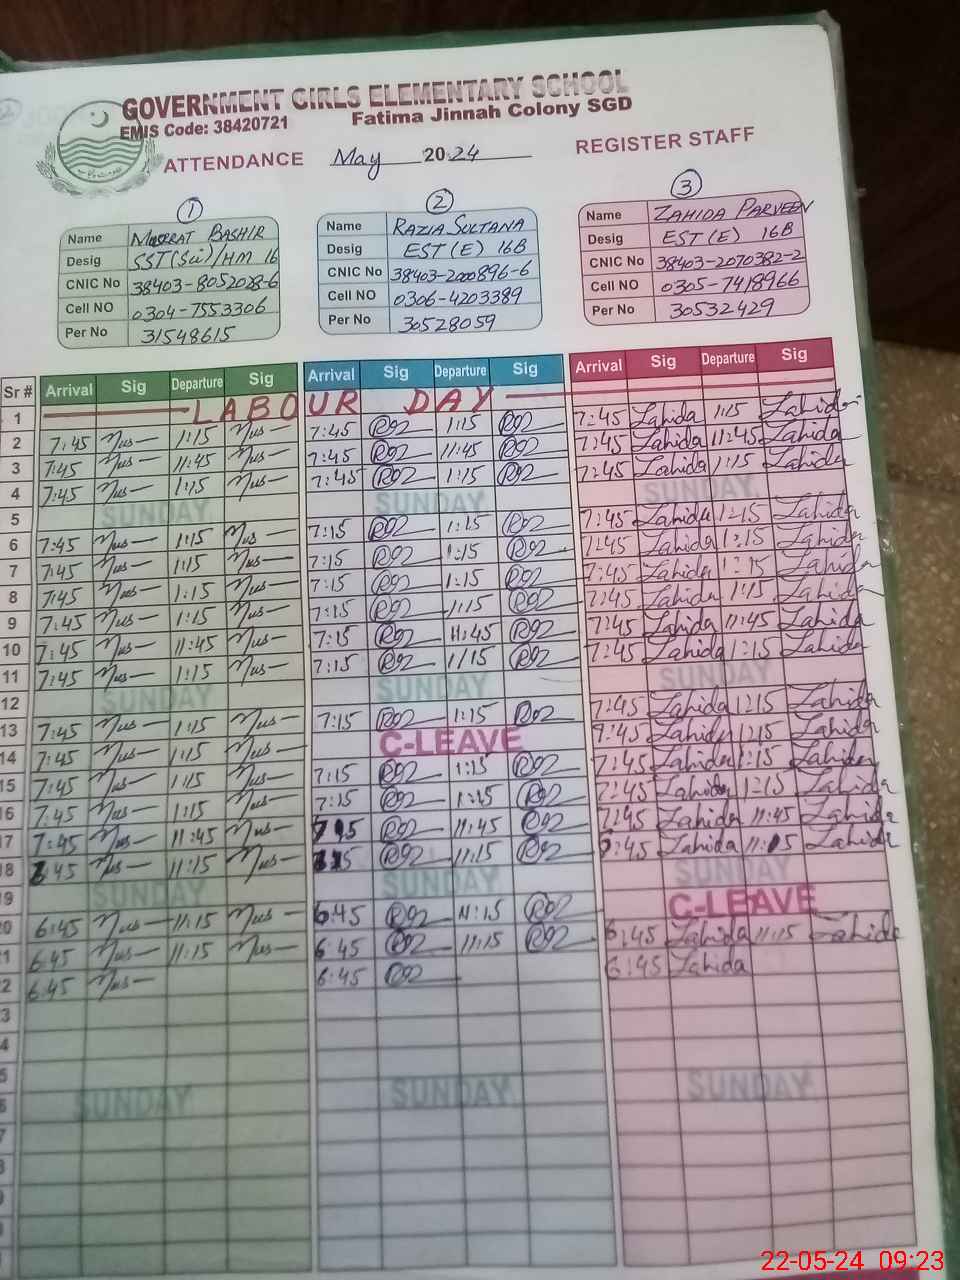 GOVERNMENT GIRLS ELEMENTARY SCHOOL
EMIS Code: 38420721 Fatima Jinnah Colony SGD
ATTENDANCE May 2024 REGISTER STAFF
1 2 3
Name MUSRRAT BASHIR
Desig SST(Sci)/HM 16
CNIC No 38403-8052028-6
Cell NO 0304-7553306
Per No 31548615
Name RAZIA SULTANA
Desig EST(E) 16B
CNIC No 38403-2000896-6
Cell NO 0306-4203389
Per No 30528059
Name ZAHIDA PARVEEN
Desig EST(E) 16B
CNIC No 38403-2070382-2
Cell NO 0305-7418966
Per No 30532429
Sr # Arrival Sig Departure Sig Arrival Sig Departure Sig Arrival Sig Departure Sig
1 LABOUR DAY
2 7:45 Mus 1:15 Mus 7:45 1:15 7:45 Zahida 1:15 Zahida
3 7:45 Mus 11:45 Mus 7:45 11:45 7:45 Zahida 11:45 Zahida
4 7:45 Mus 1:15 Mus 7:45 1:15 7:45 Zahida 1:15 Zahida
5 SUNDAY SUNDAY SUNDAY
6 7:45 Mus 1:15 Mus 7:15 1:15 7:45 Zahida 1:15 Zahida
7 7:45 Mus 1:15 Mus 7:15 1:15 7:45 Zahida 1:15 Zahida
8 7:45 Mus 1:15 Mus 7:15 1:15 7:45 Zahida 1:15 Zahida
9 7:45 Mus 1:15 Mus 7:15 1:15 7:45 Zahida 1:15 Zahida
10 7:45 Mus 11:45 Mus 7:15 11:45 7:45 Zahida 11:45 Zahida
11 7:45 Mus 1:15 Mus 7:15 1:15 7:45 Zahida 1:15 Zahida
12 SUNDAY SUNDAY SUNDAY
13 7:45 Mus 1:15 Mus 7:15 1:15 7:45 Zahida 1:15 Zahida
14 7:45 Mus 1:15 Mus C-LEAVE 7:45 Zahida 1:15 Zahida
15 7:45 Mus 1:15 Mus 7:15 1:15 7:45 Zahida 1:15 Zahida
16 7:45 Mus 1:15 Mus 7:15 1:15 7:45 Zahida 1:15 Zahida
17 7:45 Mus 11:45 Mus 7:15 11:45 7:45 Zahida 11:45 Zahida
18 :45 Mus 11:15 Mus 11:15 :45 Zahida 11:15 Zahida
19 SUNDAY SUNDAY SUNDAY
20 6:45 Mus 11:15 Mus 6:45 11:15 C-LEAVE
21 6:45 Mus 11:15 Mus 6:45 11:15 6:45 Zahida 11:15 Zahida
2 6:45 Mus 6:45 6:45 Zahida
3
4
5
6 SUNDAY SUNDAY SUNDAY
7
8
22-05-24 09:23